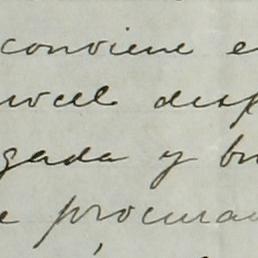 conviene e
ivcel desp
gada y bu
e procura